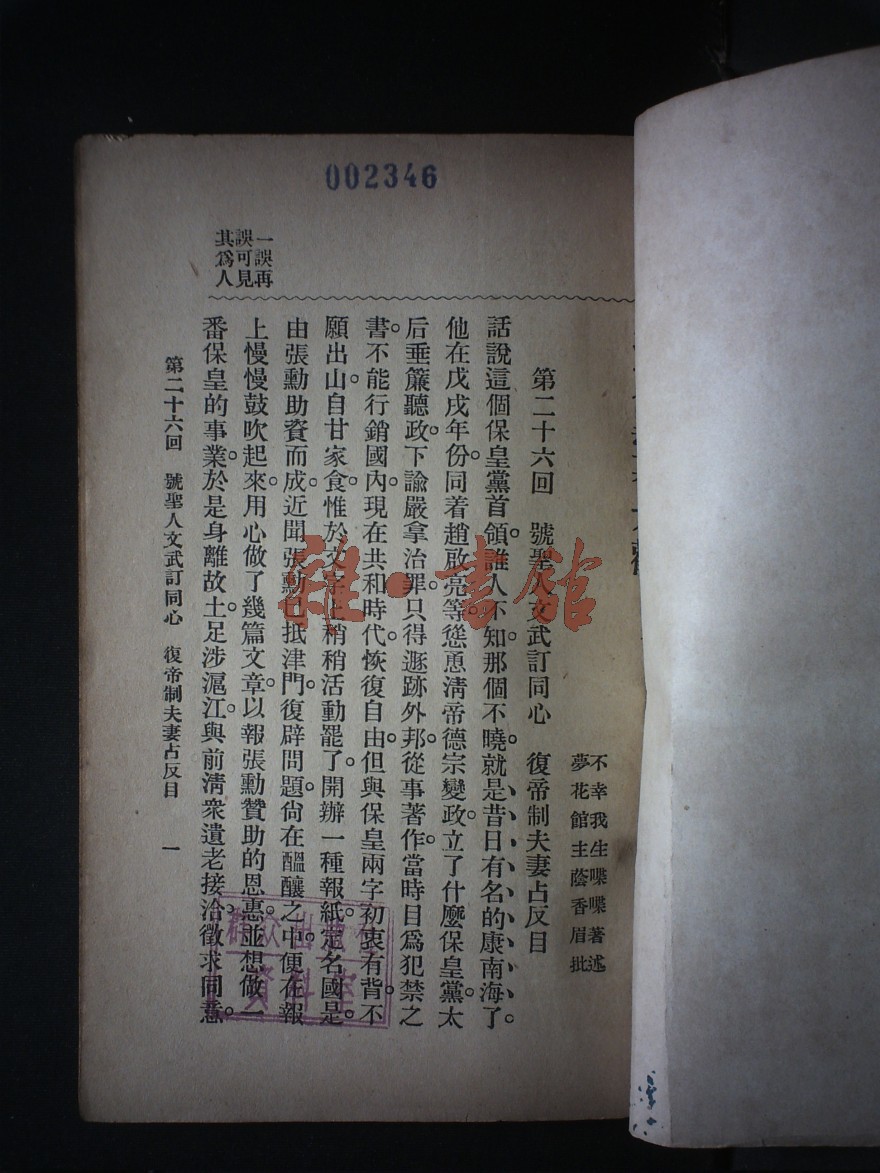 002346
不幸我生喋喋著述
夢花館主蔭香眉批
第二十六回 號聖人文武訂同心 復帝制夫妻占反目
話說這個保皇黨首領。誰人不知。那個不曉。就是昔日有名的康南海了。
他在戊戌年份。同着趙啟亮等慫恿清帝德宗變政。立了什麼保皇黨。太
后垂簾聽政。下諭嚴拿治罪。只得遯跡外邦。從事著作。當時目爲犯禁之
書。不能行銷國內。現在共和時代。恢復自由。但與保皇兩字初衷有背。不
願出山。自甘家食。惟於文字上稍稍活動罷了。開辦一種報紙。定名國是。
由張勳助資而成。近聞張勳已抵津門。復辟問題。尙在醞釀之中。便在報
上慢慢鼓吹起來。用心做了幾篇文章。以報張勳贊助的恩惠。並想做一
番保皇的事業。於是身離故土。足涉滬江。與前清衆遺老接洽。徵求同意。
一誤再
誤可見
其爲人
第二十六回 號聖人文武訂同心 復帝制夫妻占反目 一
雜·書館
群众出版社
資料室